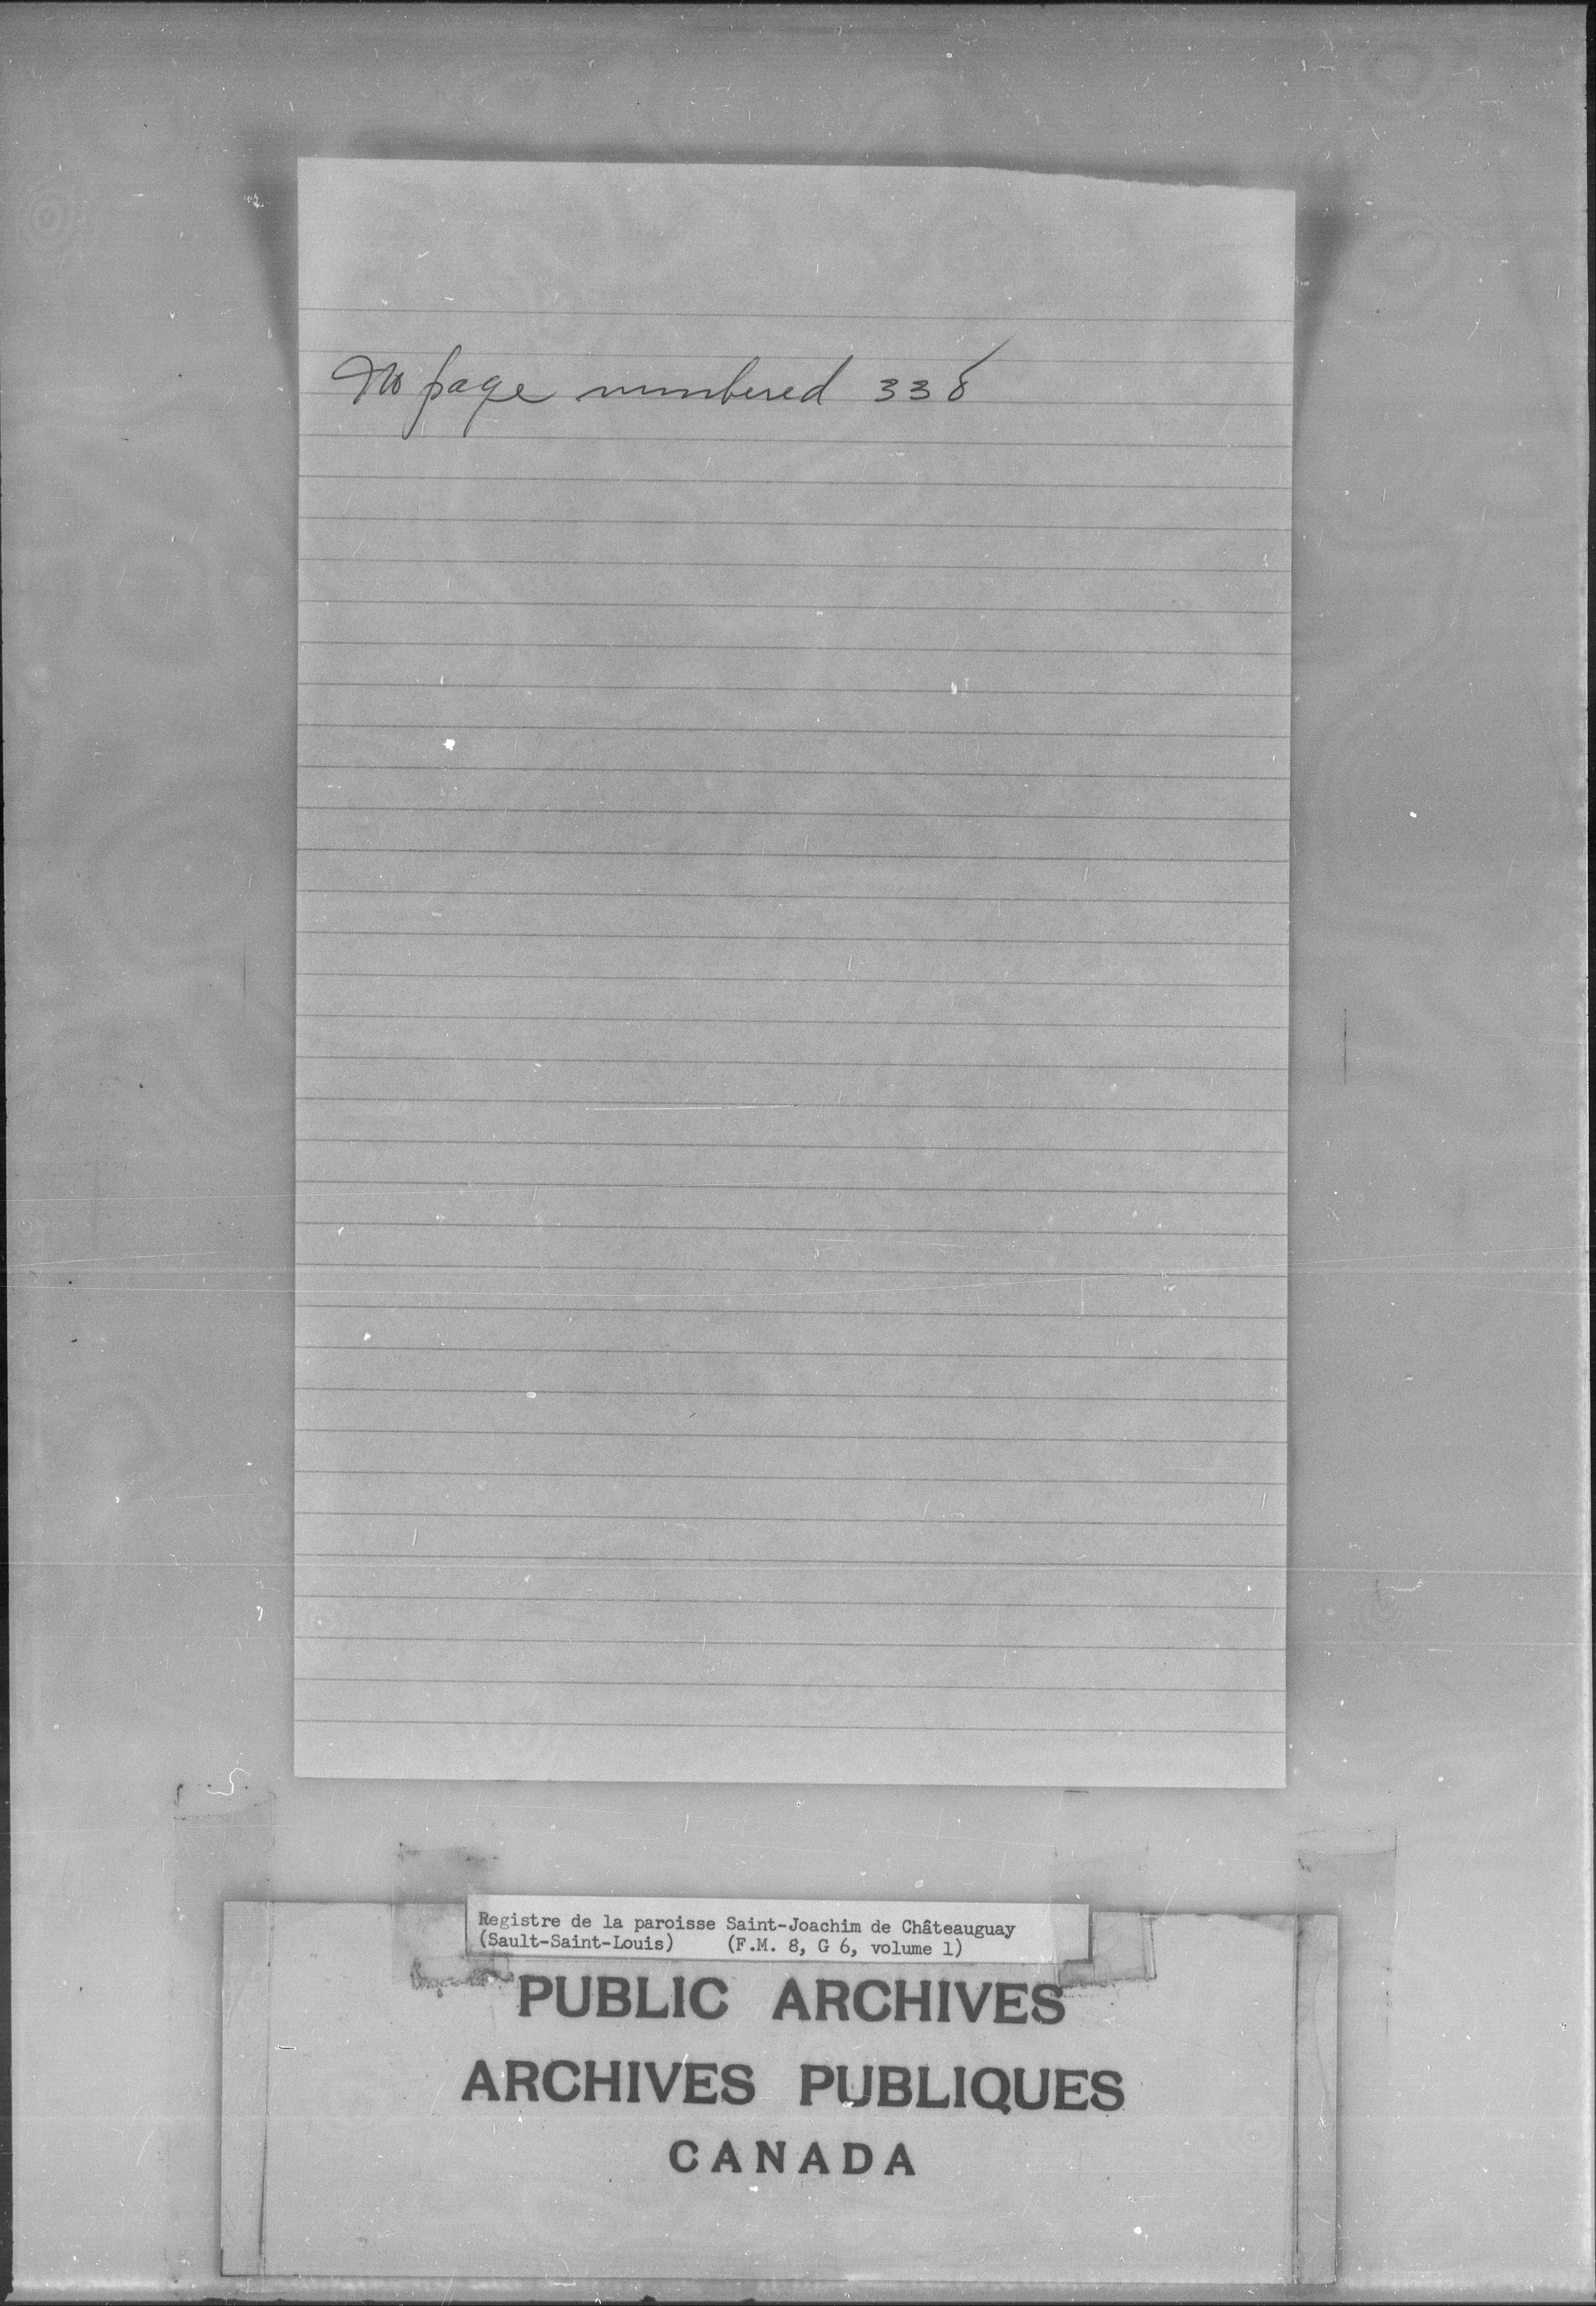 No page numbered 338
Registre de la paroisse Saint-Joachim de Châteauguay
(Sault-Saint-Louis) (F.M. 8, G 6, volume 1)
PUBLIC ARCHIVES
ARCHIVES PUBLIQUES
CANADA